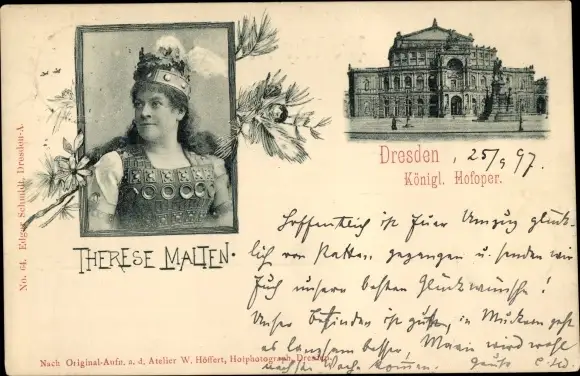 No. 64. Edgar Schmidt, Dresden-A.
THERESE MALTEN.
Dresden, 25/9 97.
Königl. Hofoper.
Hoffentlich ist Euer Umzug glück-
lich von statten gegangen u. senden wir
Euch unsere besten Glückwünsche!
Unser Befinden ist gut, in Muckern geht
es langsam besser. Marie wird wohl
nächste Woche kommen.
Nach Original-Aufn. a. d. Atelier W. Höffert, Hofphotograph, Dresden.